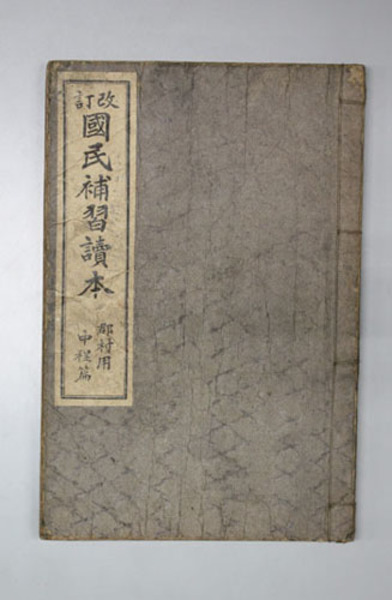 改訂
國民補習讀本
郡村用
中程篇